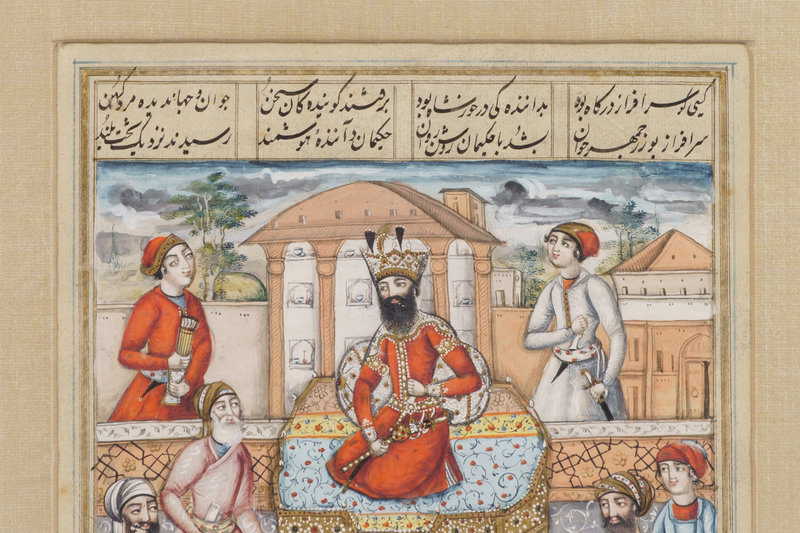 کسی کو سرافراز درکاه بود بدانندہ کی درخور شاه بود برفتند کوینده کان سخن جوان و جهاندیده مرد کهن
سرافراز بوزرجمهر جوان بشد با حکیمان روشن روان حکیمان دانندهٔ هوشمند رسیدند نزدیک تخت بلند